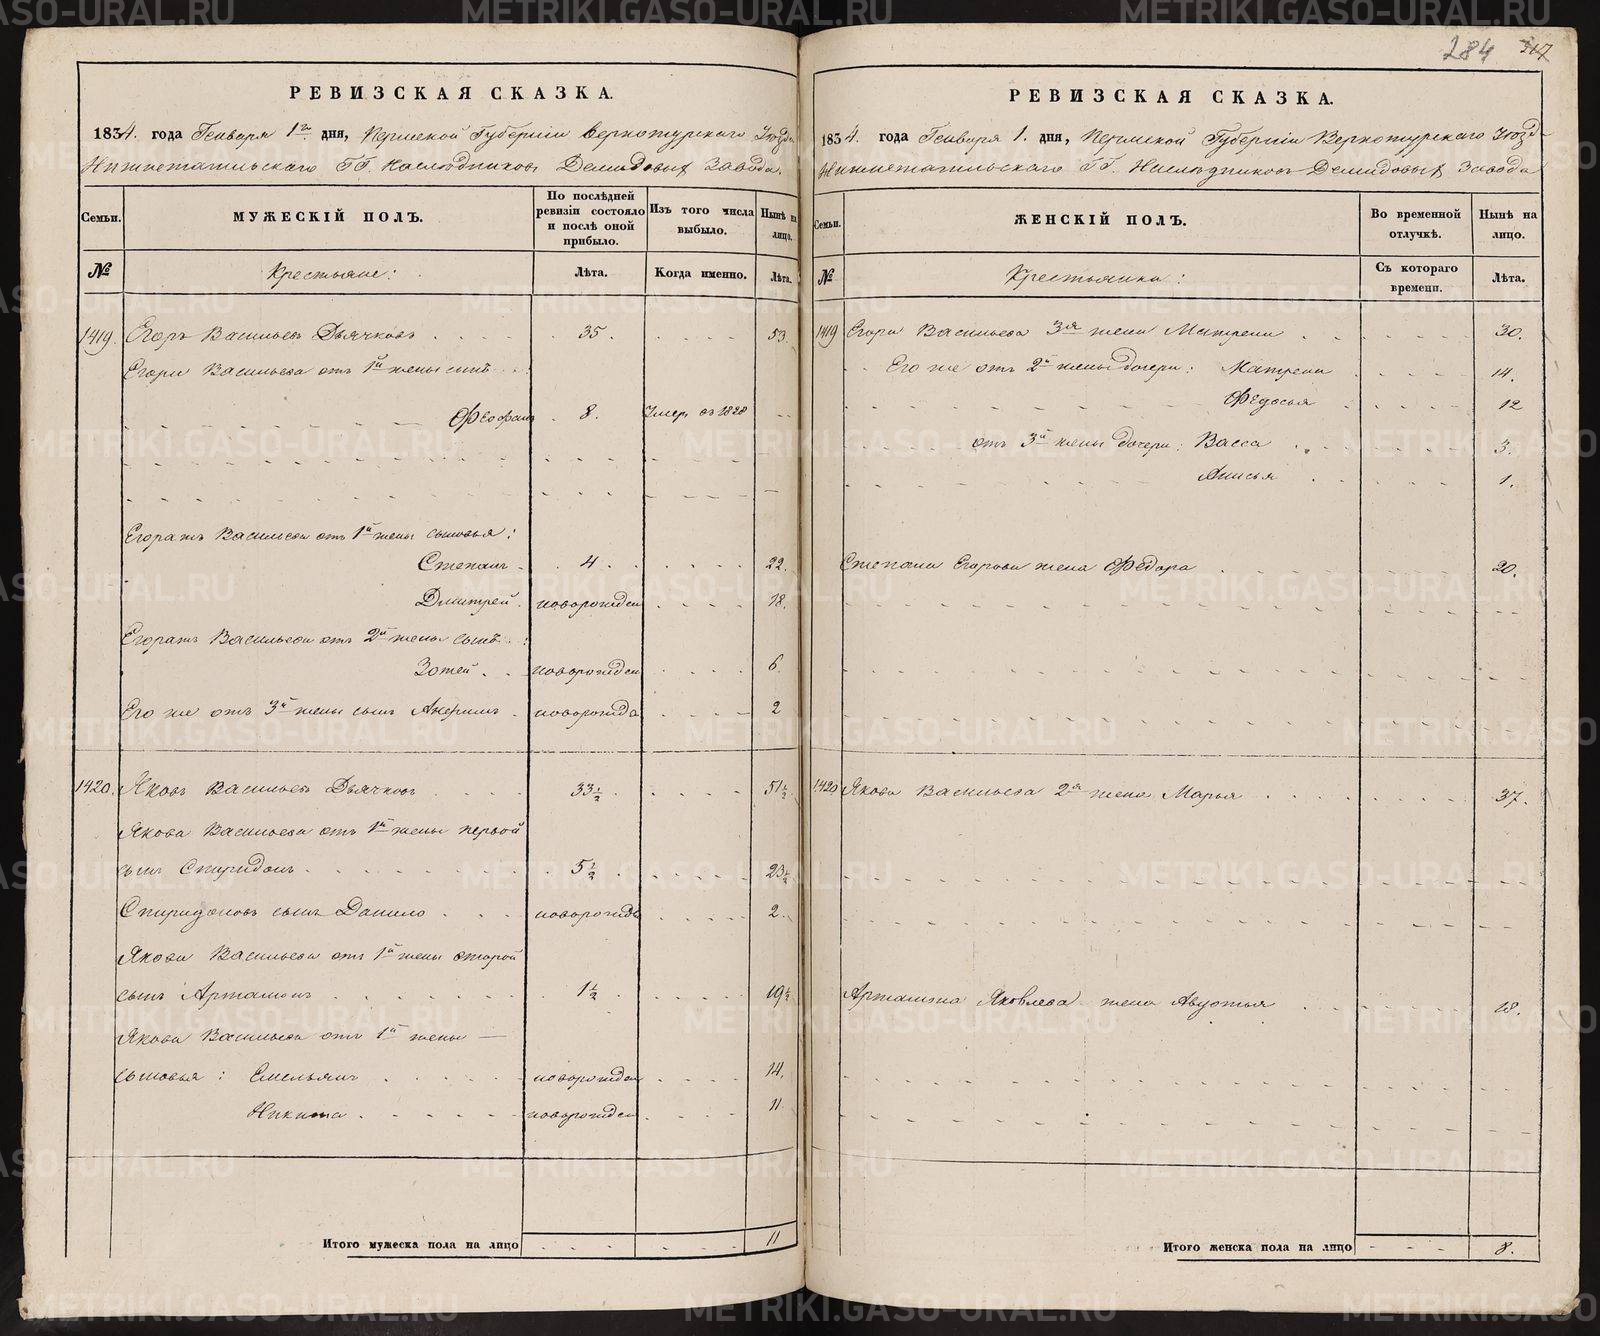 284 317
РЕВИЗСКАЯ СКАЗКА.
1834. года Генваря 1го дня, Пермской Губерніи Верхотурскаго Уѣзда
Нижнетагильскаго ГГ. Наслѣдниковъ Демидовыхъ Завода.
Семьи.
МУЖЕСКІЙ ПОЛЪ.
По послѣдней ревизіи состояло и послѣ оной прибыло.
Изъ того числа выбыло.
Нынѣ на лицо.
№
Крестьяне:
Лѣта.
Когда именно.
Лѣта.
1419. Егоръ Васильевъ Дьячковъ 35. 53
Егора Васильева отъ 1й жены сынъ
Феофанъ 8. Умер. въ 1828
Егора жъ Васильева отъ 1й жены сыновья:
Степанъ 4. 22.
Дмитрей. новорожден 18.
Егора жъ Васильева отъ 2й жены сынъ:
Зотей новорожден 6.
Его же отъ 3й жены сынъ новорожде 2
1420. Яковъ Васильевъ Дьячковъ 33 1/2 51 1/2
Якова Васильева отъ 1й жены первой
сынъ Спиридонъ 5 1/2 23 1/2
Спиридоновъ сынъ Данило новорожде 2.
Якова Васильева отъ 1й жены второй
сынъ Артамонъ 1 1/2 19 1/2
Якова Васильева отъ 1й жены —
сыновья: Емельянъ новорожден 14.
Никита новорожден 11.
Итого мужеска пола на лицо 11
РЕВИЗСКАЯ СКАЗКА.
1834. года Генваря 1. дня, Пермской Губерніи Верхотурскаго Уѣзд
Нижнетагильскаго ГГ. Наслѣдниковъ Демидовыхъ Завода
Семьи.
ЖЕНСКІЙ ПОЛЪ.
Во временной отлучкѣ.
Нынѣ на лицо.
№
Крестьянки:
Съ котораго времени.
Лѣта.
1419 Егора Васильева 3я жена Матрена 30.
Его же отъ 2й жены дочери: Матрена 14.
Федосья 12
отъ 3й жены дочери: Васса 3.
Анисья 1.
Степана Егорова жена Федора 20.
1420 Якова Васильева 2я жена Марья 37.
Артамона Яковлева жена Авдотья 18.
Итого женска пола на лицо 8.
METRIKI.GASO-URAL.RU